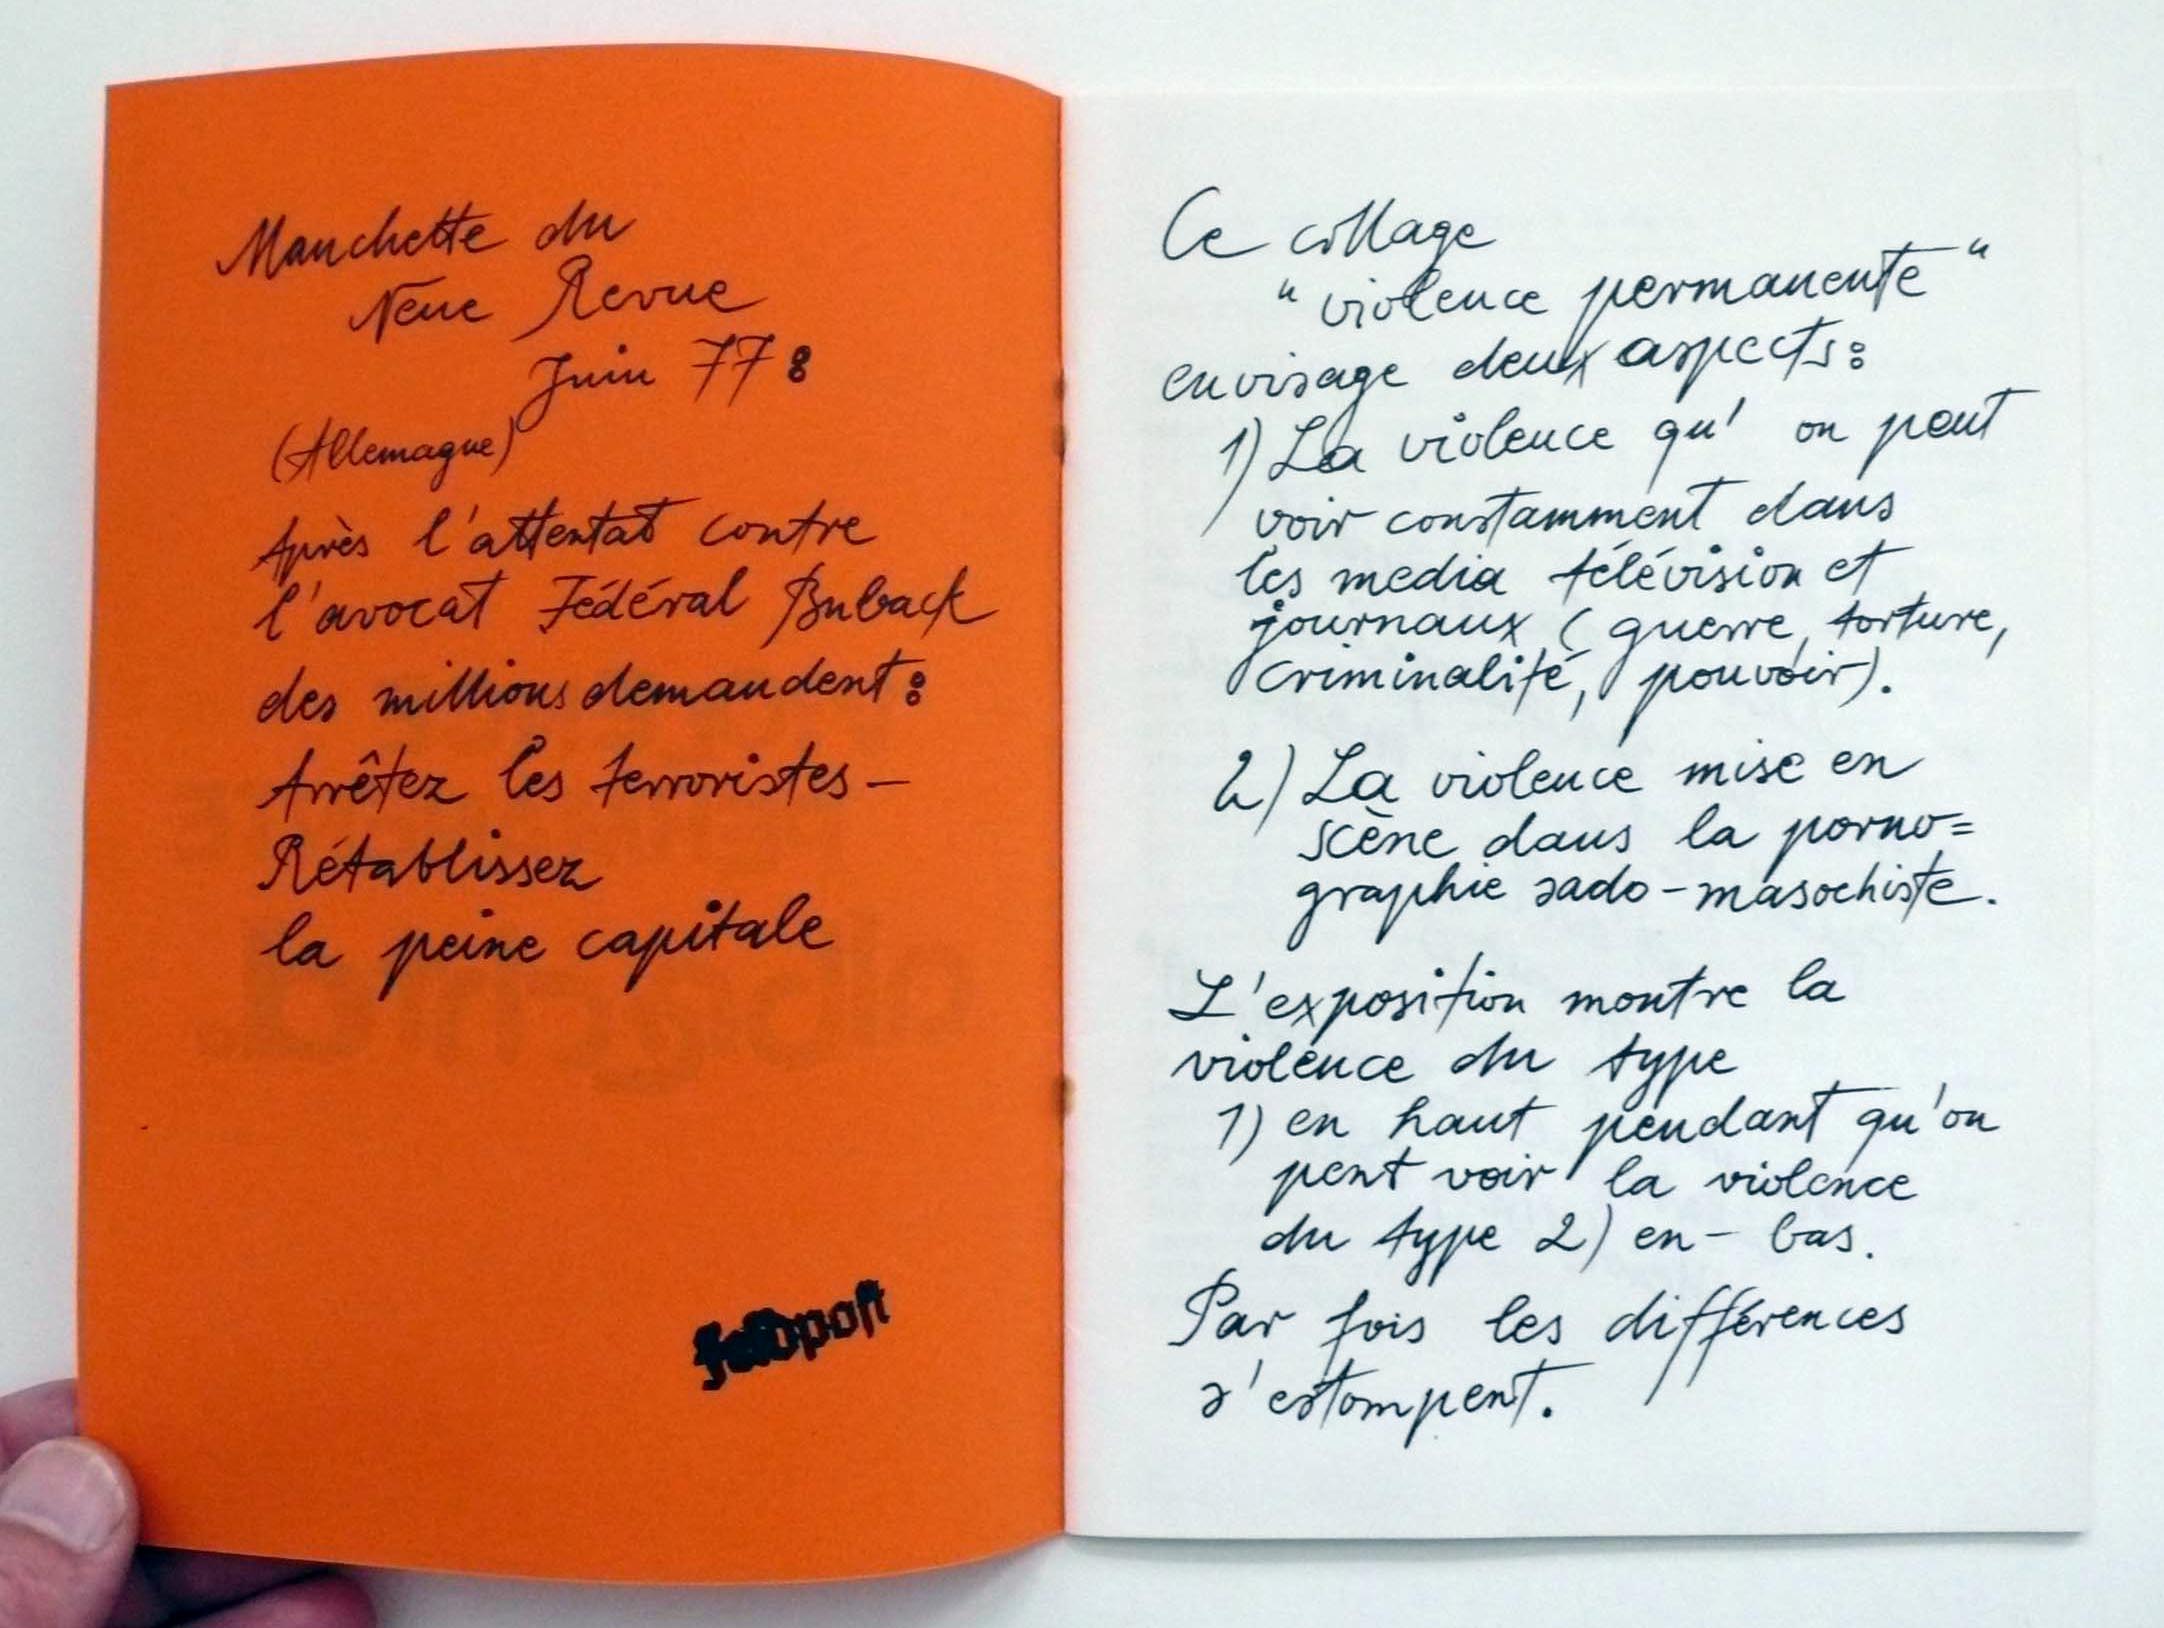 Manchette du
Neue Revue
Juin 77 :
(Allemagne)
Après l'attentat contre
l'avocat Fédéral Buback
des millions demandent :
Arrêtez les terroristes –
Rétablissez
la peine capitale
Feldpost
Ce collage
"violence permanente"
envisage deux aspects :
1) La violence qu' on peut
voir constamment dans
les media télévision et
journaux ( guerre, torture,
criminalité, pouvoir).
2) La violence mise en
scène dans la porno=
graphie sado-masochiste.
L'exposition montre la
violence du type
1) en haut pendant qu'on
peut voir la violence
du type 2) en- bas.
Par fois les différences
s'estompent.